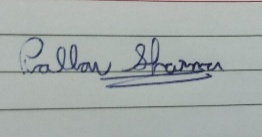 Pallav Sharma